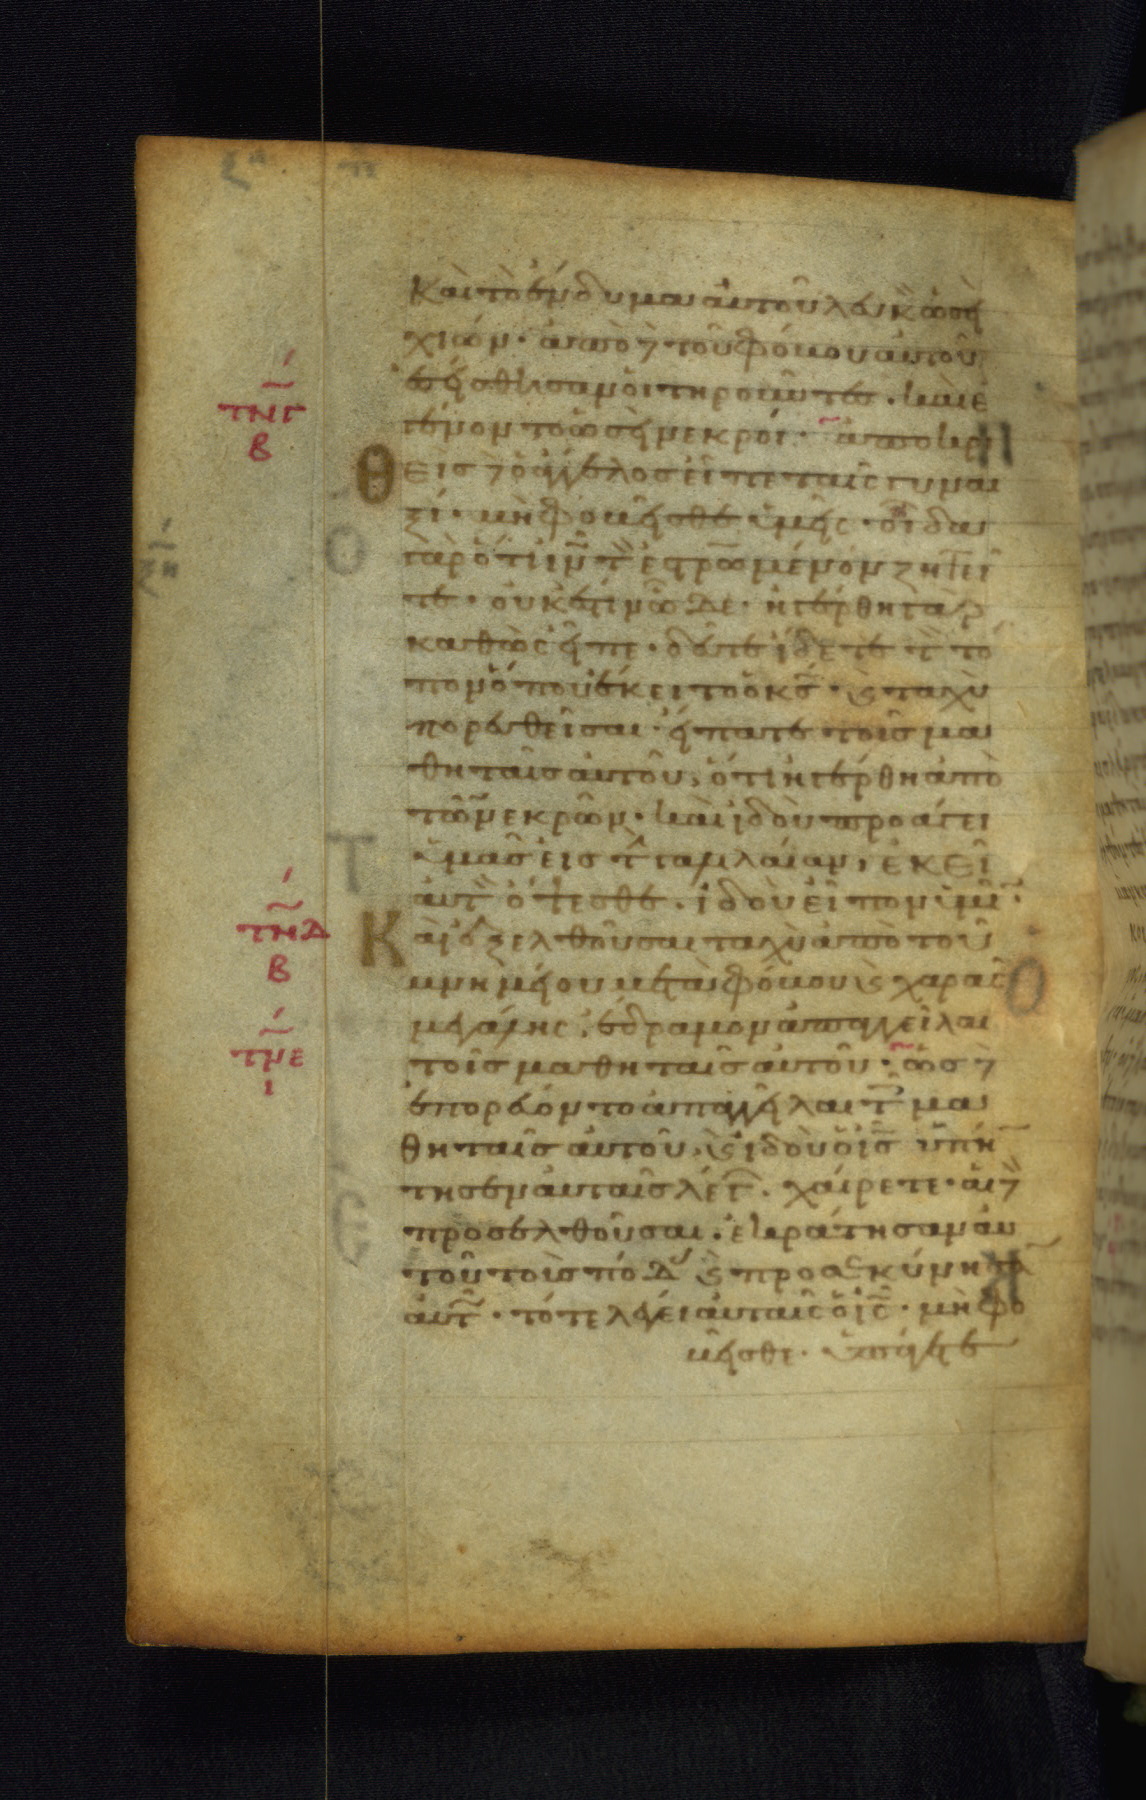 Καὶ τὸ ἔνδυμα αὐτοῦ λευκὸν ὡσεὶ
χιών· ἀπὸ δὲ τοῦ φόβου αὐτοῦ
ἐσείσθησαν οἱ τηροῦντες· καὶ ἐ
γένοντο ὡσεὶ νεκροί· ἀποκρι
Θεὶς δὲ ὁ ἄγγελος εἶπε ταῖς γυναι
ξί· μὴ φοβεῖσθε ὑμεῖς· οἶδα
γὰρ ὅτι ιν τὸν ἐσταυρωμένον ζητεῖ
τε· οὐκ ἔστιν ὧδε· ἠγέρθη γὰρ
καθὼς εἶπε· δεῦτε ἴδετε τὸν τό
πον ὅπου ἔκειτο ὁ κς· καὶ ταχὺ
πορευθεῖσαι· εἴπατε τοῖς μα
θηταῖς αὐτοῦ, ὅτι ἠγέρθη ἀπὸ
τῶν νεκρῶν· καὶ ἰδοὺ προάγει
ὑμᾶς εἰς τὴν γαλιλαίαν, ἐκεῖ
αὐτὸν ὄψεσθε· ἰδοὺ εἶπον ὑμῖν·
Καὶ ἐξελθοῦσαι ταχὺ ἀπὸ τοῦ
μνημείου μετὰ φόβου καὶ χαρᾶς
μεγάλης· ἔδραμον ἀπαγγεῖλαι
τοῖς μαθηταῖς αὐτοῦ· ὡς δὲ
ἐπορεύοντο ἀπαγγεῖλαι τοῖς μα
θηταῖς αὐτοῦ, καὶ ἰδοὺ ὁ ις ὑπήν
τησεν αὐταῖς λέγων· χαίρετε· αἱ δὲ
προσελθοῦσαι· ἐκράτησαν αὐ
τοῦ τοὺς πόδας καὶ προσεκύνησαν
αὐτῷ· τότε λέγει αὐταῖς ὁ ις· μὴ φο
βεῖσθε· ὑπάγετε
τνγ
β
τνδ
β
τνε
ι